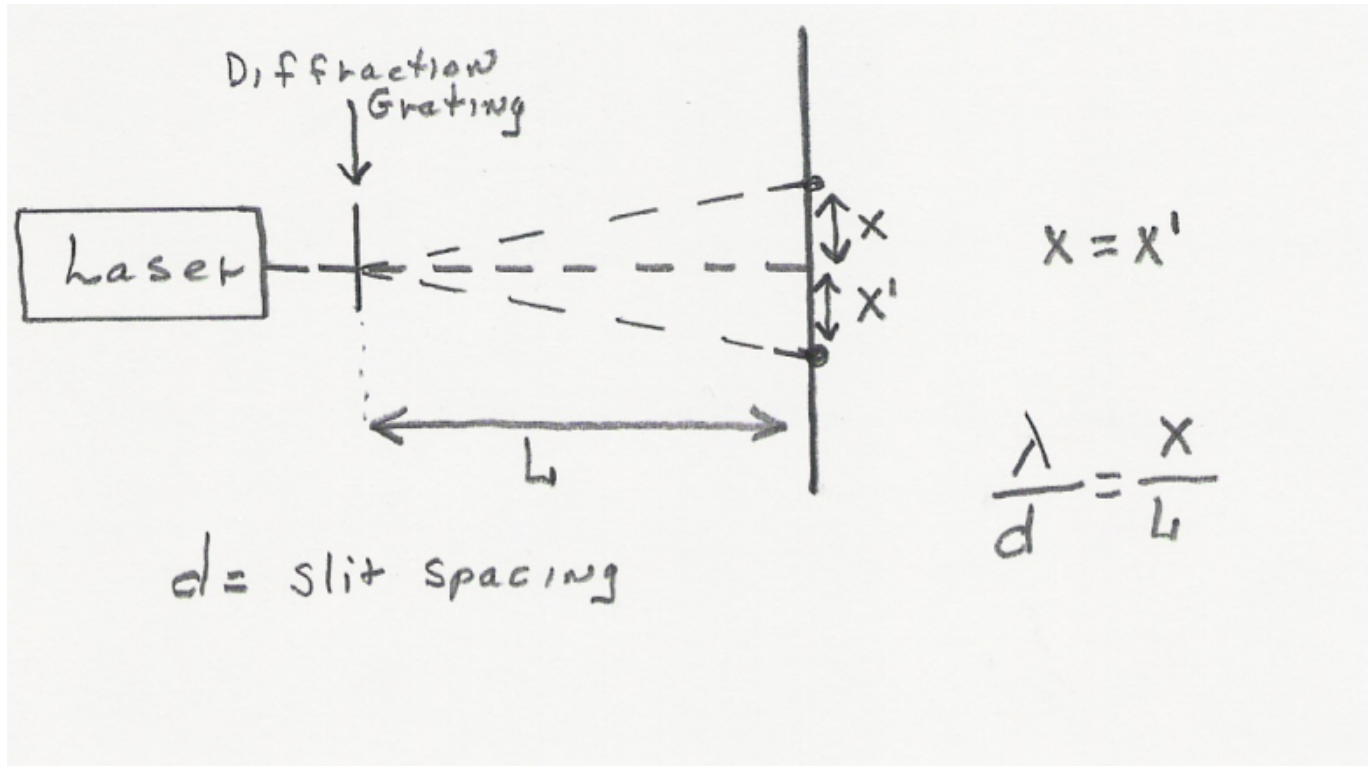 Diffraction
Grating
Laser
x
x'
x = x'
L
λ/d = x/L
d = slit spacing